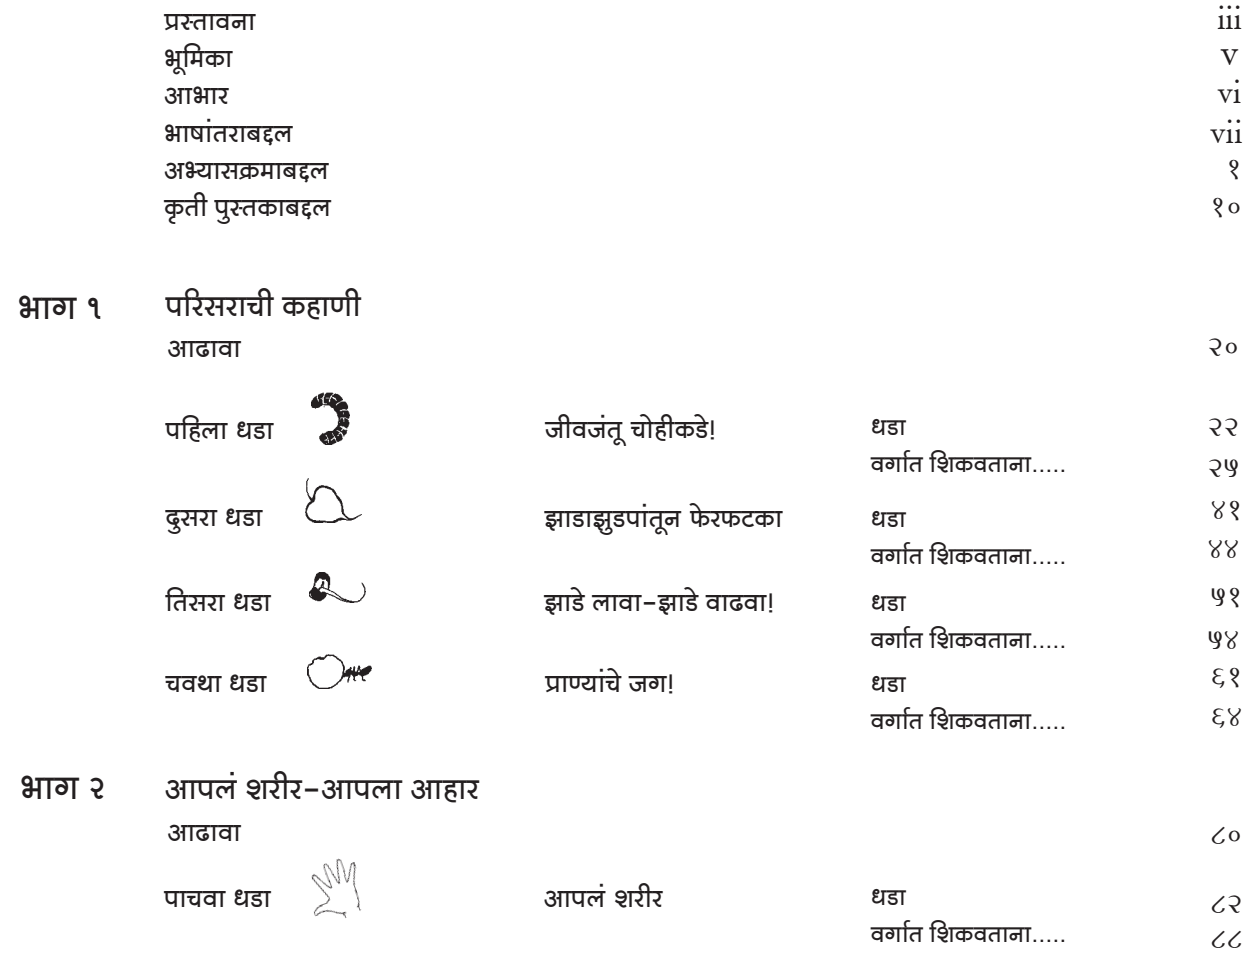 प्रस्तावना iii
भूमिका v
आभार vi
भाषांतराबद्दल vii
अभ्यासक्रमाबद्दल १
कृती पुस्तकाबद्दल १०
भाग १ परिसराची कहाणी
आढावा २०
पहिला धडा जीवजंतू चोहीकडे! धडा २२
वर्गात शिकवताना..... २५
दुसरा धडा झाडाझुडपांतून फेरफटका धडा ४१
वर्गात शिकवताना..... ४४
तिसरा धडा झाडे लावा-झाडे वाढवा! धडा ५१
वर्गात शिकवताना..... ५४
चवथा धडा प्राण्यांचे जग! धडा ६१
वर्गात शिकवताना..... ६४
भाग २ आपलं शरीर-आपला आहार
आढावा ८०
पाचवा धडा आपलं शरीर धडा ८२
वर्गात शिकवताना..... ८८